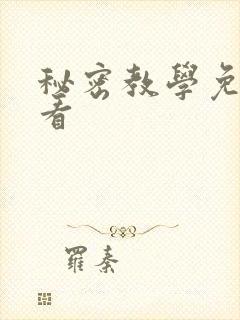 秘密教學免
看
羅秦